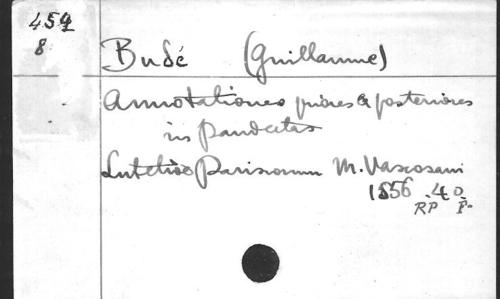 459
8
Budé (Guillaume)
Annotationes priores & posteriores
in pandectas
Lutetiae Parisiorum M. Vascosani
1556 4o
RP F.